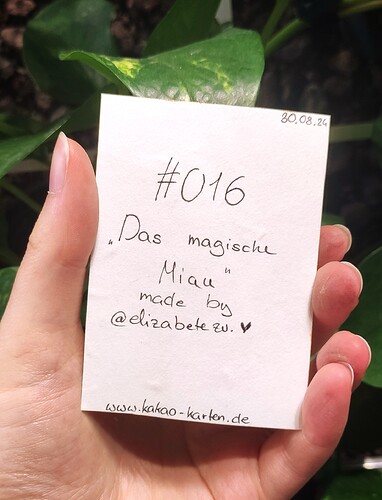 30.08.24
#016
„Das magische
Miau“
made by
@elizabete zv. ♥
www.kakao-karten.de